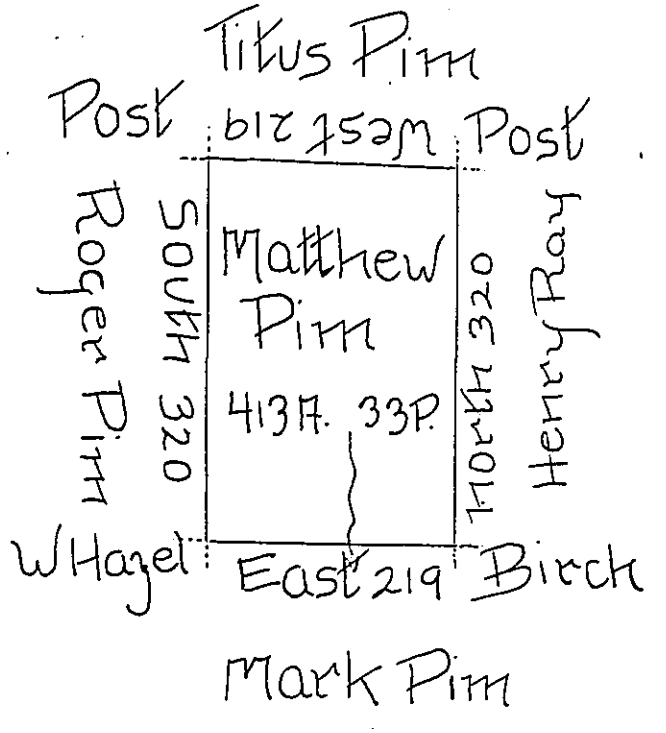 Titus Pim
Post
West 219
Post
Roger Pim
South 320
Matthew
Pim
413A. 33P.
North 320
Henry Ray
WHazel
East 219
Birch
Mark Pim